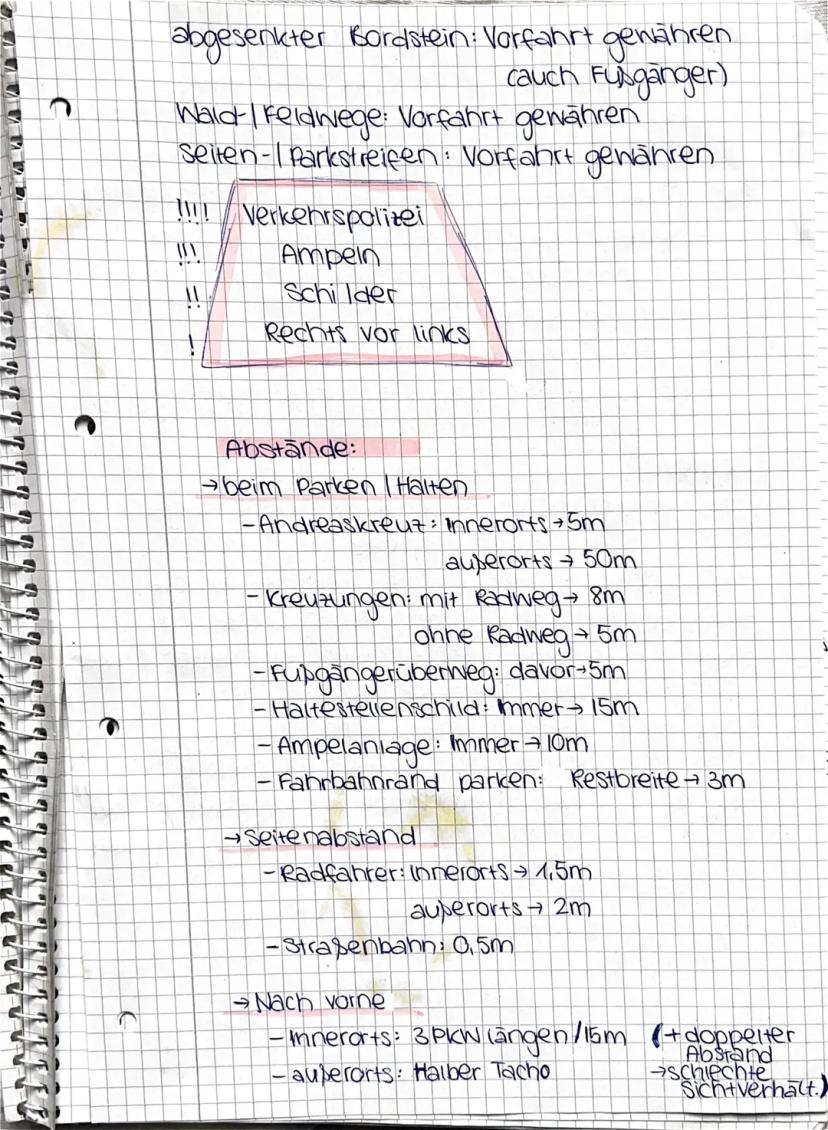 abgesenkter Bordstein: Vorfahrt gewähren
(auch Fußgänger)
Wald-/Feldwege: Vorfahrt gewähren
Seiten-/Parkstreifen: Vorfahrt gewähren
!!!! Verkehrspolizei
!!! Ampeln
!! Schilder
! Rechts vor links
Abstände:
→ beim Parken/Halten
- Andreaskreuz: Innerorts → 5m
außerorts → 50m
- Kreuzungen: mit Radweg → 8m
ohne Radweg → 5m
- Fußgängerüberweg: davor → 5m
- Haltestellenschild: Immer → 15m
- Ampelanlage: Immer → 10m
- Fahrbahnrand parken: Restbreite → 3m
→ Seitenabstand
- Radfahrer: Innerorts → 1,5m
außerorts → 2m
- Straßenbahn: 0,5m
→ Nach vorne
- Innerorts: 3 PKW längen/15m (+ doppelter
Abstand
- außerorts: Halber Tacho → schlechte
Sichtverhält.)